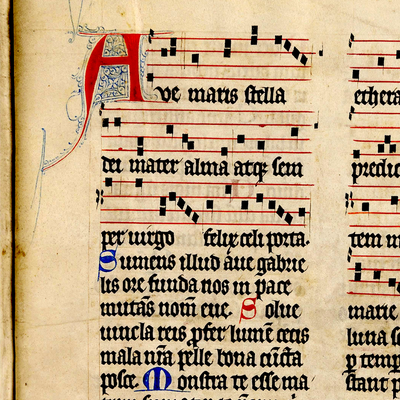 Ave maris stella
dei mater alma atq; sem
per uirgo felix celi porta.
Sumens illud aue gabrie
lis ore funda nos in pace
mutãs nom̃ eue. Solue
uincla reis ꝓfer lum̃e cecis
mala nr̃a pelle bona cũcta
posce. Monstra te esse ma
ethera
predic
tem in
marie
p temp